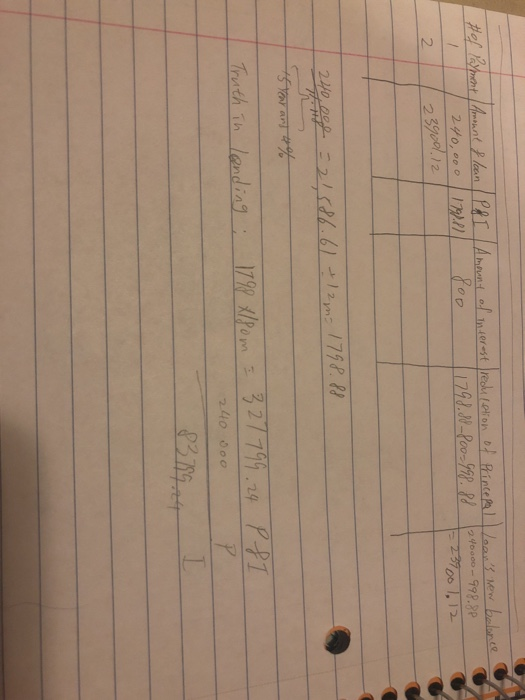 # of Payment | Amount of loan | P&I | Amount of interest | reduction of Principal | loan's new balance
1 240,000 1798.81 800 1798.88-800=998.88 240000-998.88
= 239001.12
2 239001.12
240,000 = 21,586.61 ÷ 12m = 1798.88
15 Year and 4%
Truth in lending : 1798 x 180m = 323799.24 P&I
240.000 P
83799.24 I